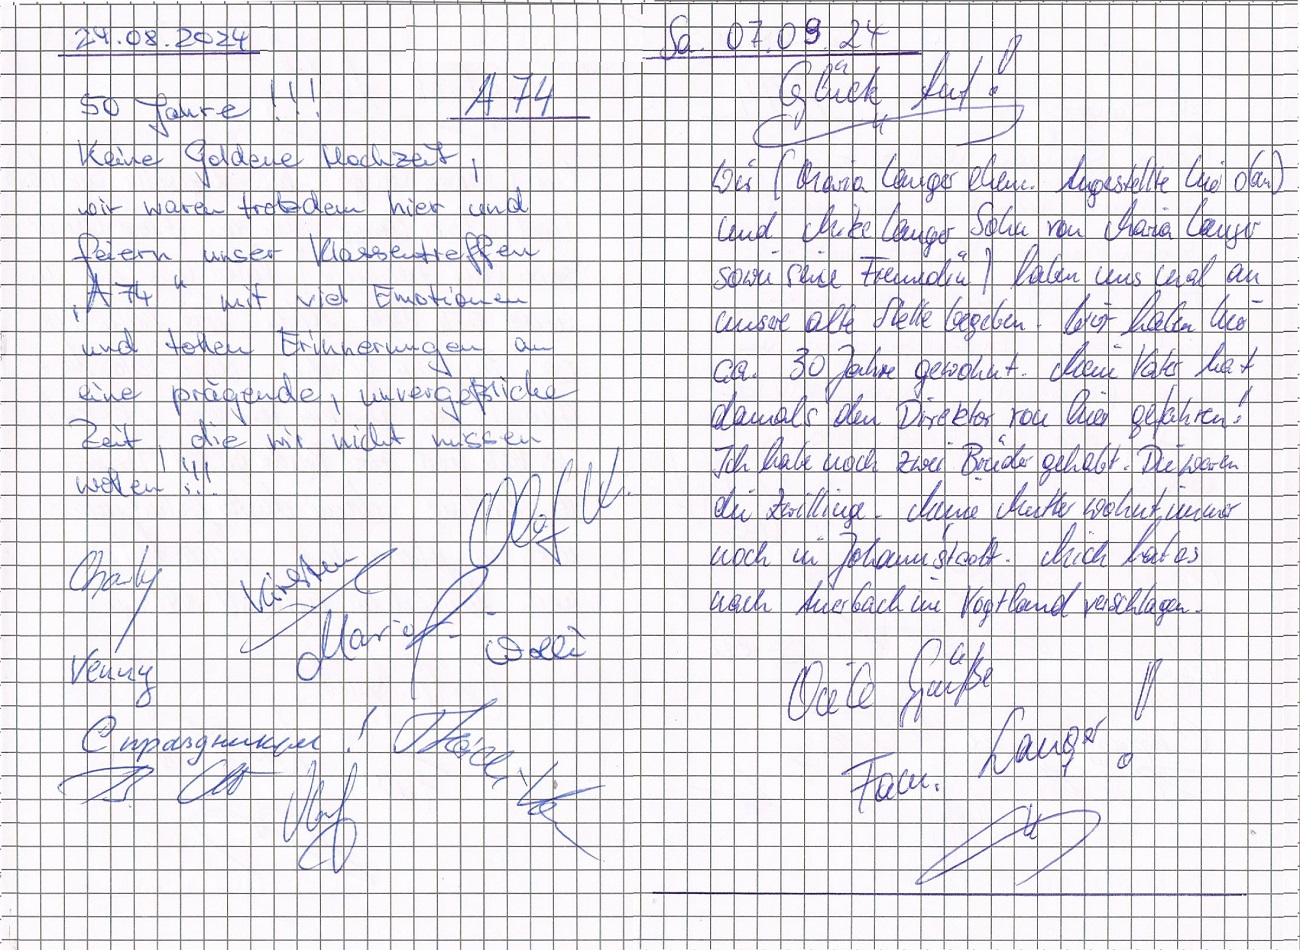 24.08.2024
50 Jahre !!! A 74
Keine Goldene Hochzeit,
wir waren trotzdem hier und
feiern unser Klassentreffen
„A 74“ mit viel Emotionen
und tollen Erinnerungen an
eine prägende, unvergeßliche
Zeit, die wir nicht missen
wollen !!!
Olaf W.
Charly
Kirsten
Mario
Venny
С праздником !
Sa. 07.09.24
Glück Auf!
Wir (Maria Langer ehem. Angestellte hier oben)
und Mike Langer Sohn von Maria Langer
sowie seine Freundin) haben uns mal an
unsere alte Stelle begeben. Wir haben hier
ca. 30 Jahre gewohnt. Mein Vater hat
damals den Direktor von hier gefahren!
Ich habe noch zwei Brüder gehabt. Die waren
die Zwillinge. Meine Mutter wohnt immer
noch in Johannstadt. Mich hat es
nach Auerbach im Vogtland verschlagen.
Viele Grüße
Fam. Langer !